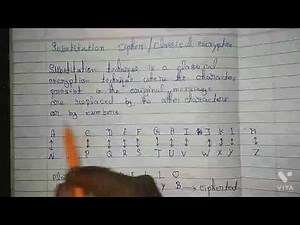 Substitution Cipher / Classical encryption
Substitution technique is a classical
encryption technique where the characters
present in the original message
are replaced by the other characters
or by numbers
A C D E F G H I J K L M
N P Q R S T U V W X Y Z
L O
Y B → ciphertext
VITA